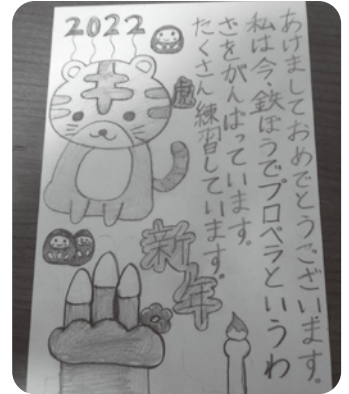 2022
虎
あけましておめでとうございます。
私は今、鉄ぼうでプロペラというわ
ざをがんばっています。
たくさん練習しています。
新年